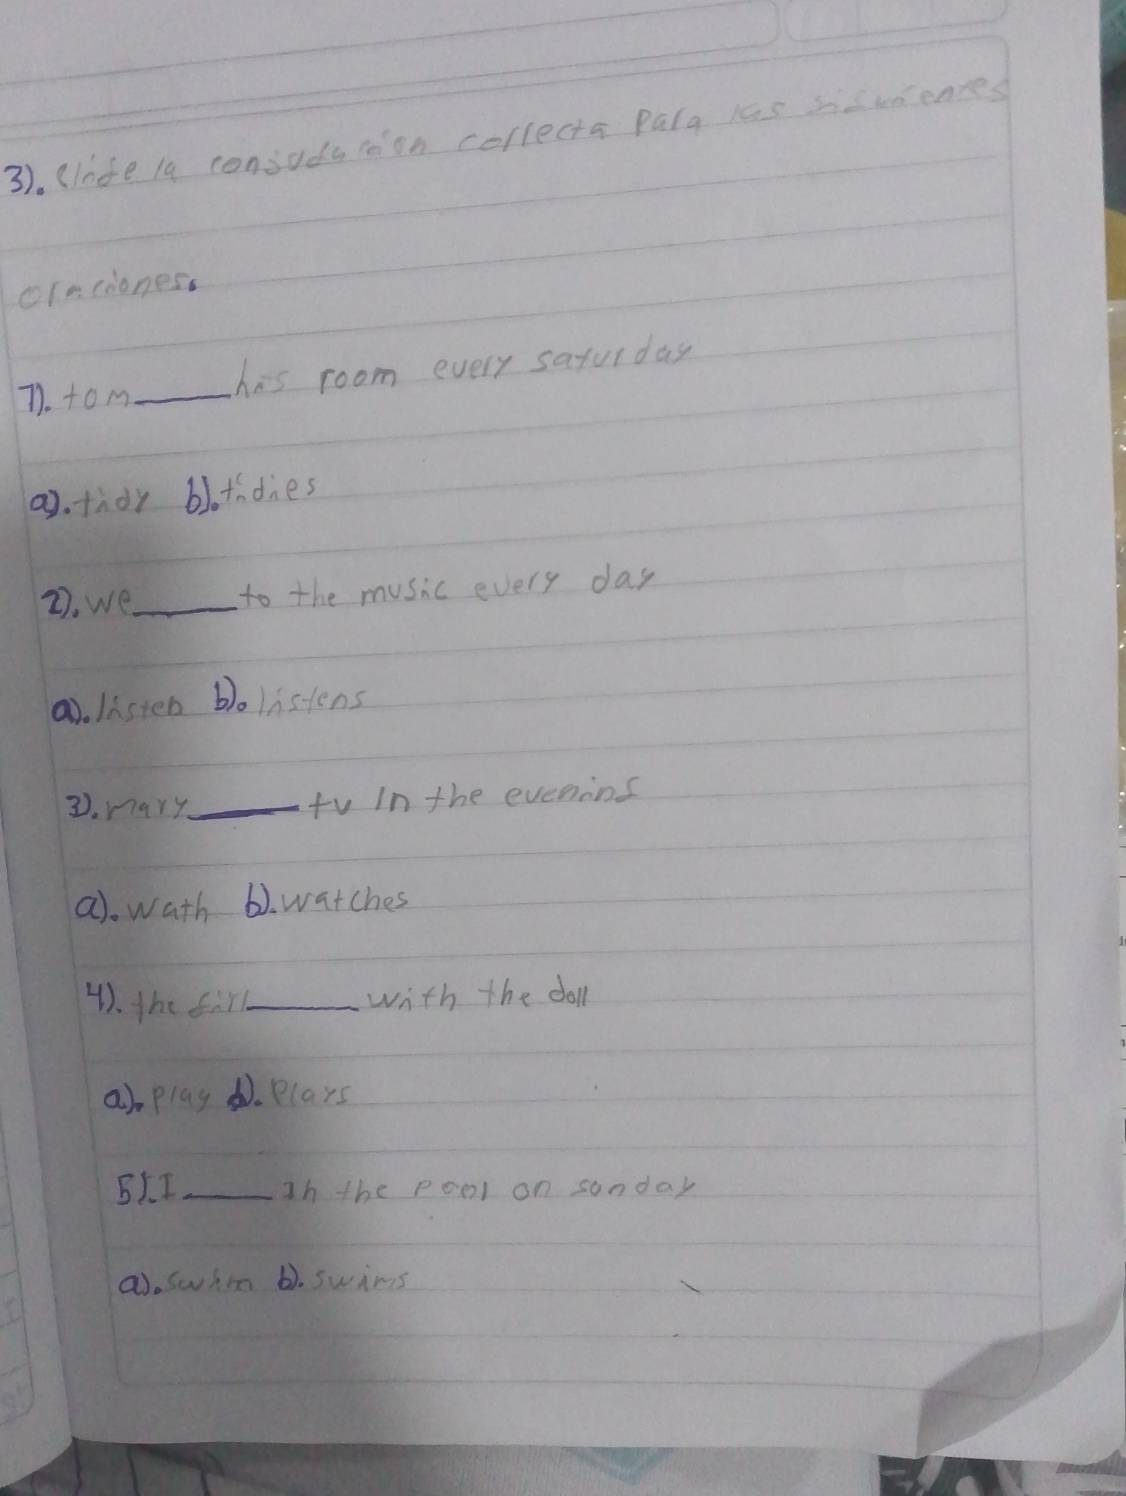 3). Elije la conjudación correcta para las siguientes
oraciones.
1). tom____his room every saturday
a). tidy b). tidies
2). we____to the music every day
a). listen b). listens
3). mary____tv In the evening
a). wath b). watches
4). the girl____with the doll
a). play b). Plays
5). I____In the pool on sonday
a). swim b). swims